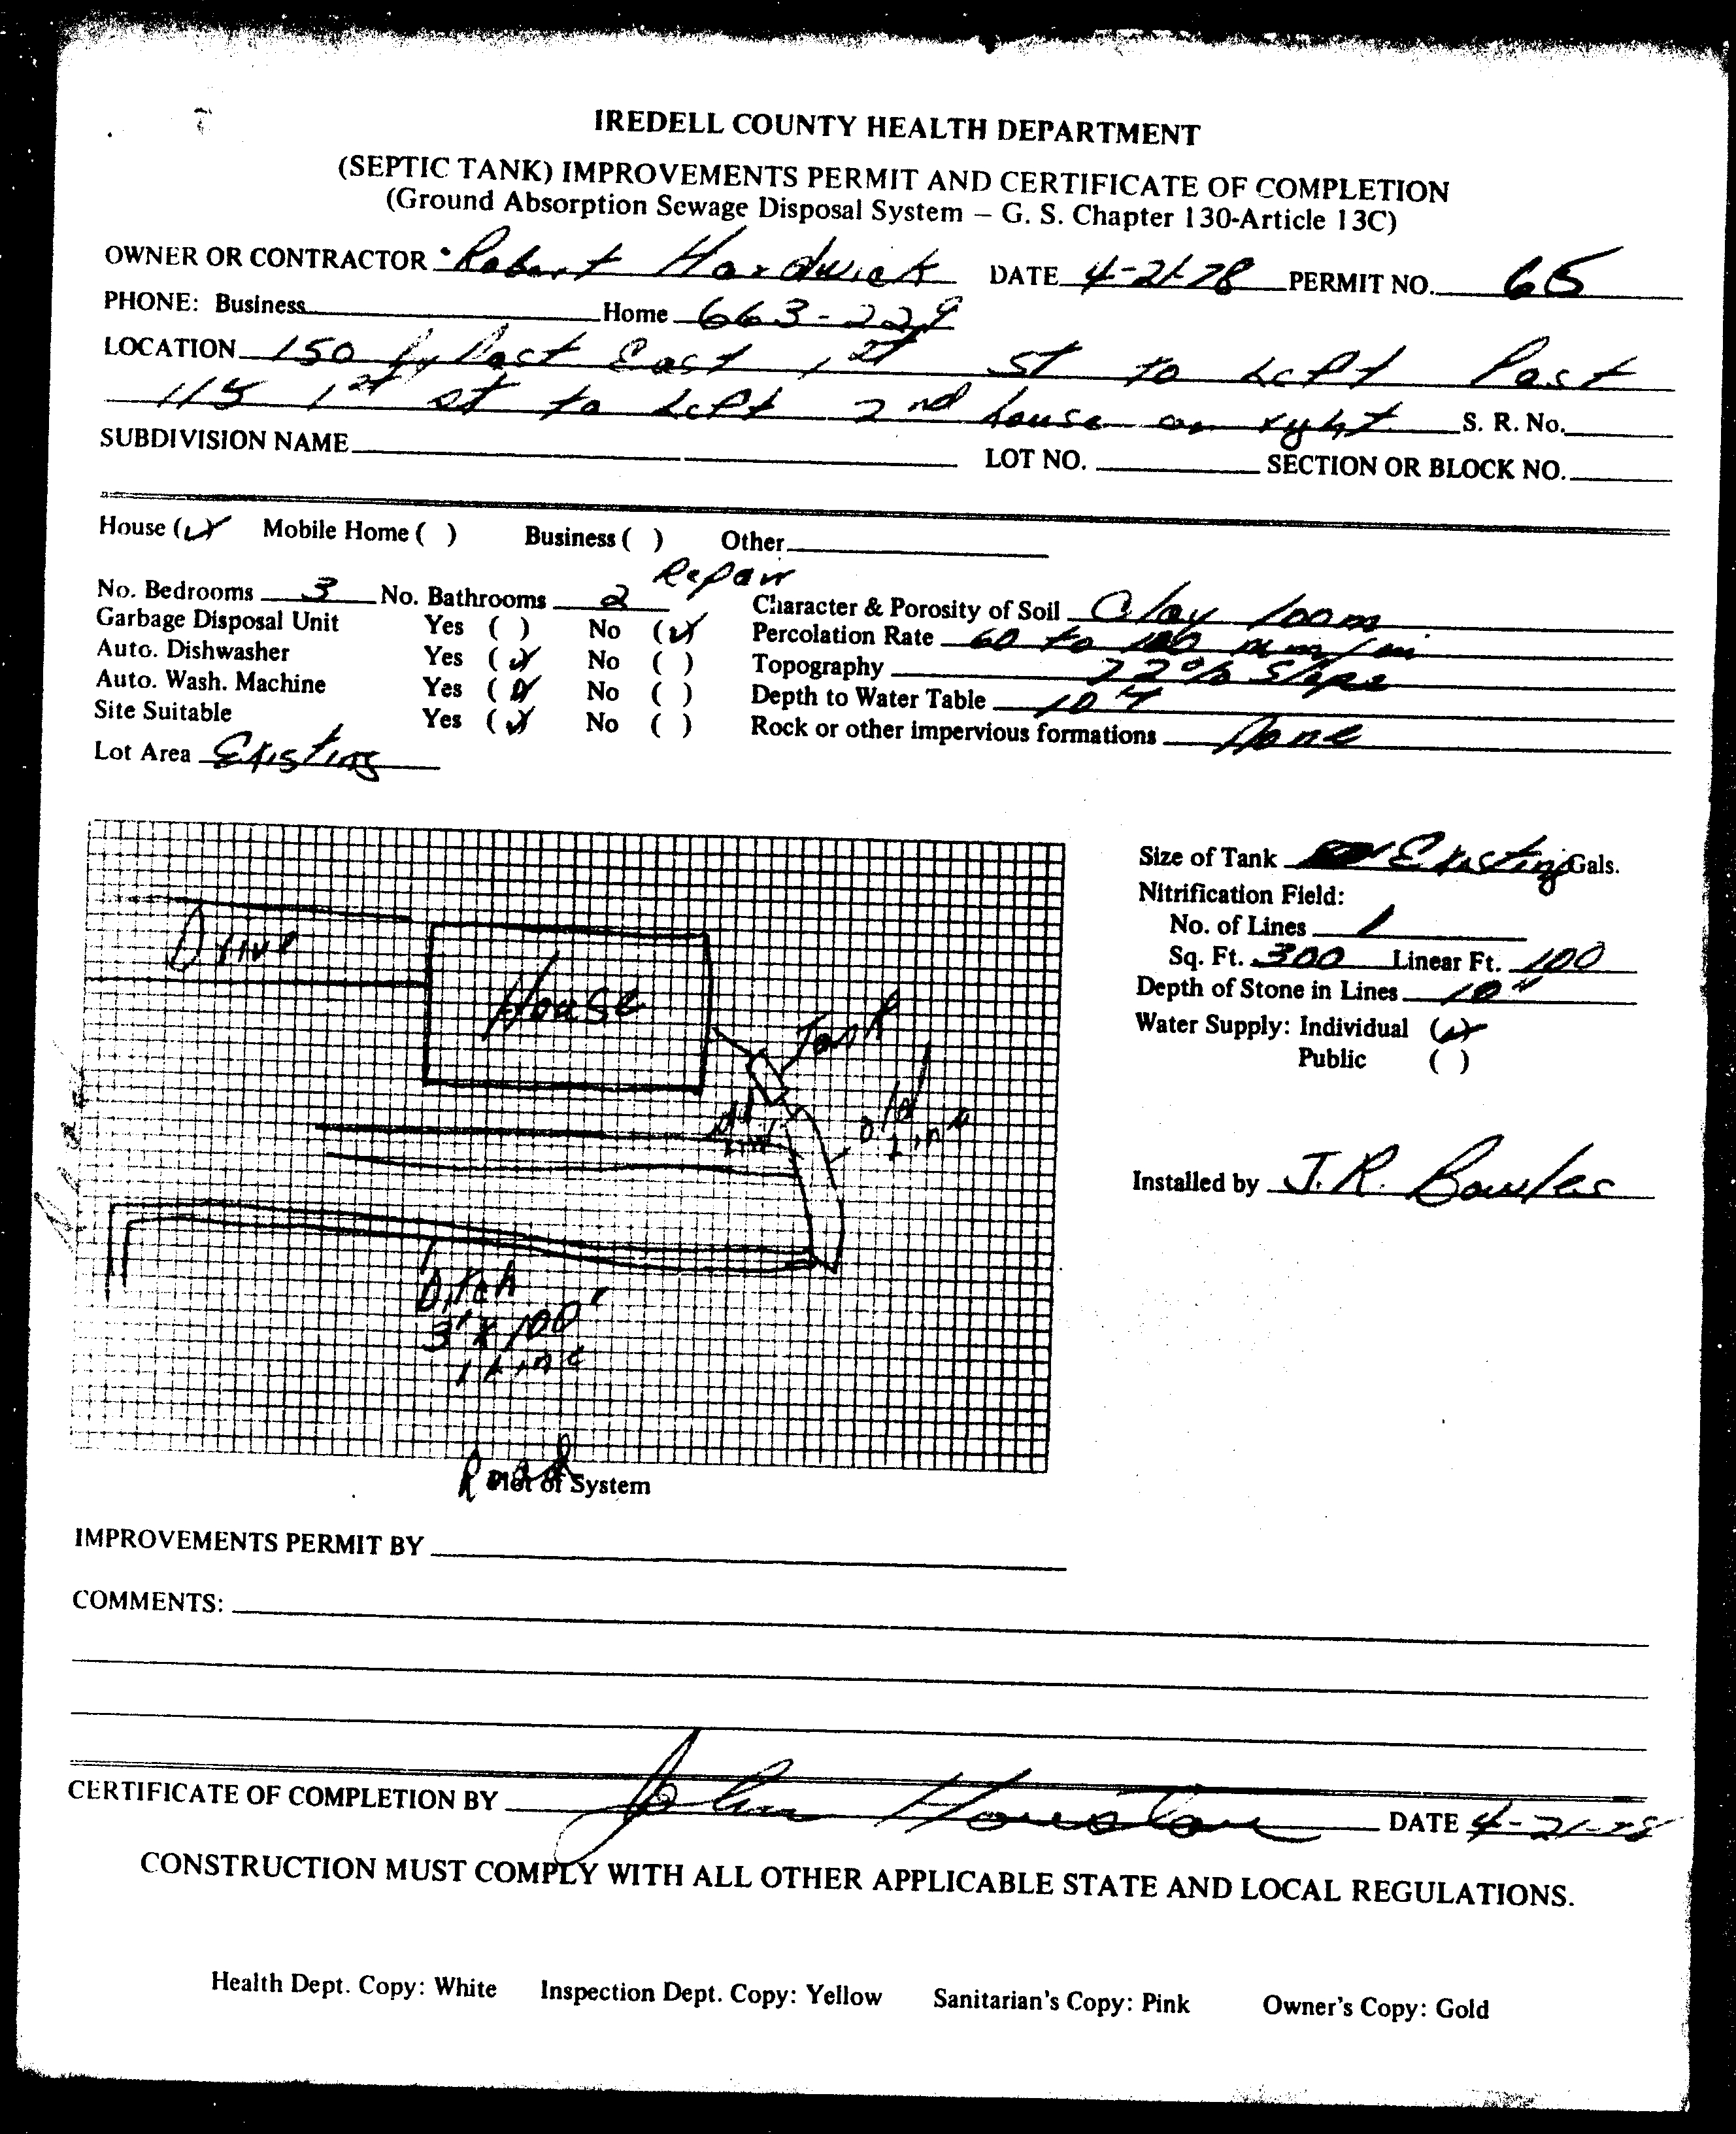 IREDELL COUNTY HEALTH DEPARTMENT
(SEPTIC TANK) IMPROVEMENTS PERMIT AND CERTIFICATE OF COMPLETION
(Ground Absorption Sewage Disposal System – G. S. Chapter 130-Article 13C)
OWNER OR CONTRACTOR Robert Hardwick DATE 4-21-78 PERMIT NO. 65
PHONE: Business Home 663-229
LOCATION 150 Past East 1st St to Left Past
115 1st st to Left 2nd house on right S. R. No.
SUBDIVISION NAME LOT NO. SECTION OR BLOCK NO.
House (✓) Mobile Home ( ) Business ( ) Other
Repair
No. Bedrooms 3 No. Bathrooms 2 Character & Porosity of Soil Clay loom
Garbage Disposal Unit Yes ( ) No (✓) Percolation Rate 60 to
Auto. Dishwasher Yes (✓) No ( ) Topography 22% Slope
Auto. Wash. Machine Yes (✓) No ( ) Depth to Water Table 10
Site Suitable Yes (✓) No ( ) Rock or other impervious formations None
Lot Area Existing
Size of Tank Existing Gals.
Nitrification Field:
No. of Lines 1
Sq. Ft. 300 Linear Ft. 100
Depth of Stone in Lines 10"
Water Supply: Individual (✓)
Public ( )
Installed by J.R. Bowles
Drive
House
Tank
old
Line
Ditch
3' x 100'
1 Line
Road
Plot of System
IMPROVEMENTS PERMIT BY
COMMENTS:
CERTIFICATE OF COMPLETION BY John Houston DATE 4-21-78
CONSTRUCTION MUST COMPLY WITH ALL OTHER APPLICABLE STATE AND LOCAL REGULATIONS.
Health Dept. Copy: White Inspection Dept. Copy: Yellow Sanitarian's Copy: Pink Owner's Copy: Gold